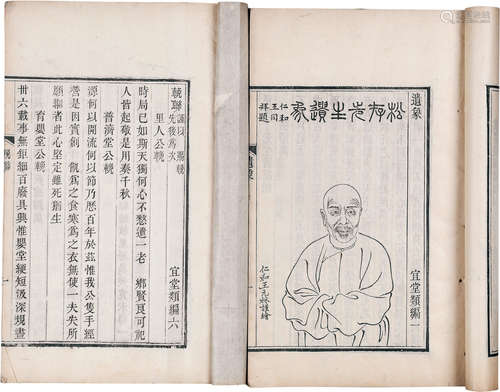 遺象
宜堂類編一
松存先生遺象
仁和
王同
拜題
仁和王 謹繪
遺象
一
輓聯 謹以賜輓先後爲次 宜堂類編六
里人公輓
時局已如斯天獨何心不憖遺一老 鄉賢良可祀
人皆起敬是用奏千秋
普濟堂公輓
源何以開流何以節乃歷百年於茲惟我公隻手經
因實創 飢爲之食寒爲之衣無使一夫失所
願 者此心堅定雖死猶生
育嬰堂公輓
卅六載事無鉅細百廢具興惟嬰堂綆短汲深規畫
輓聯
一